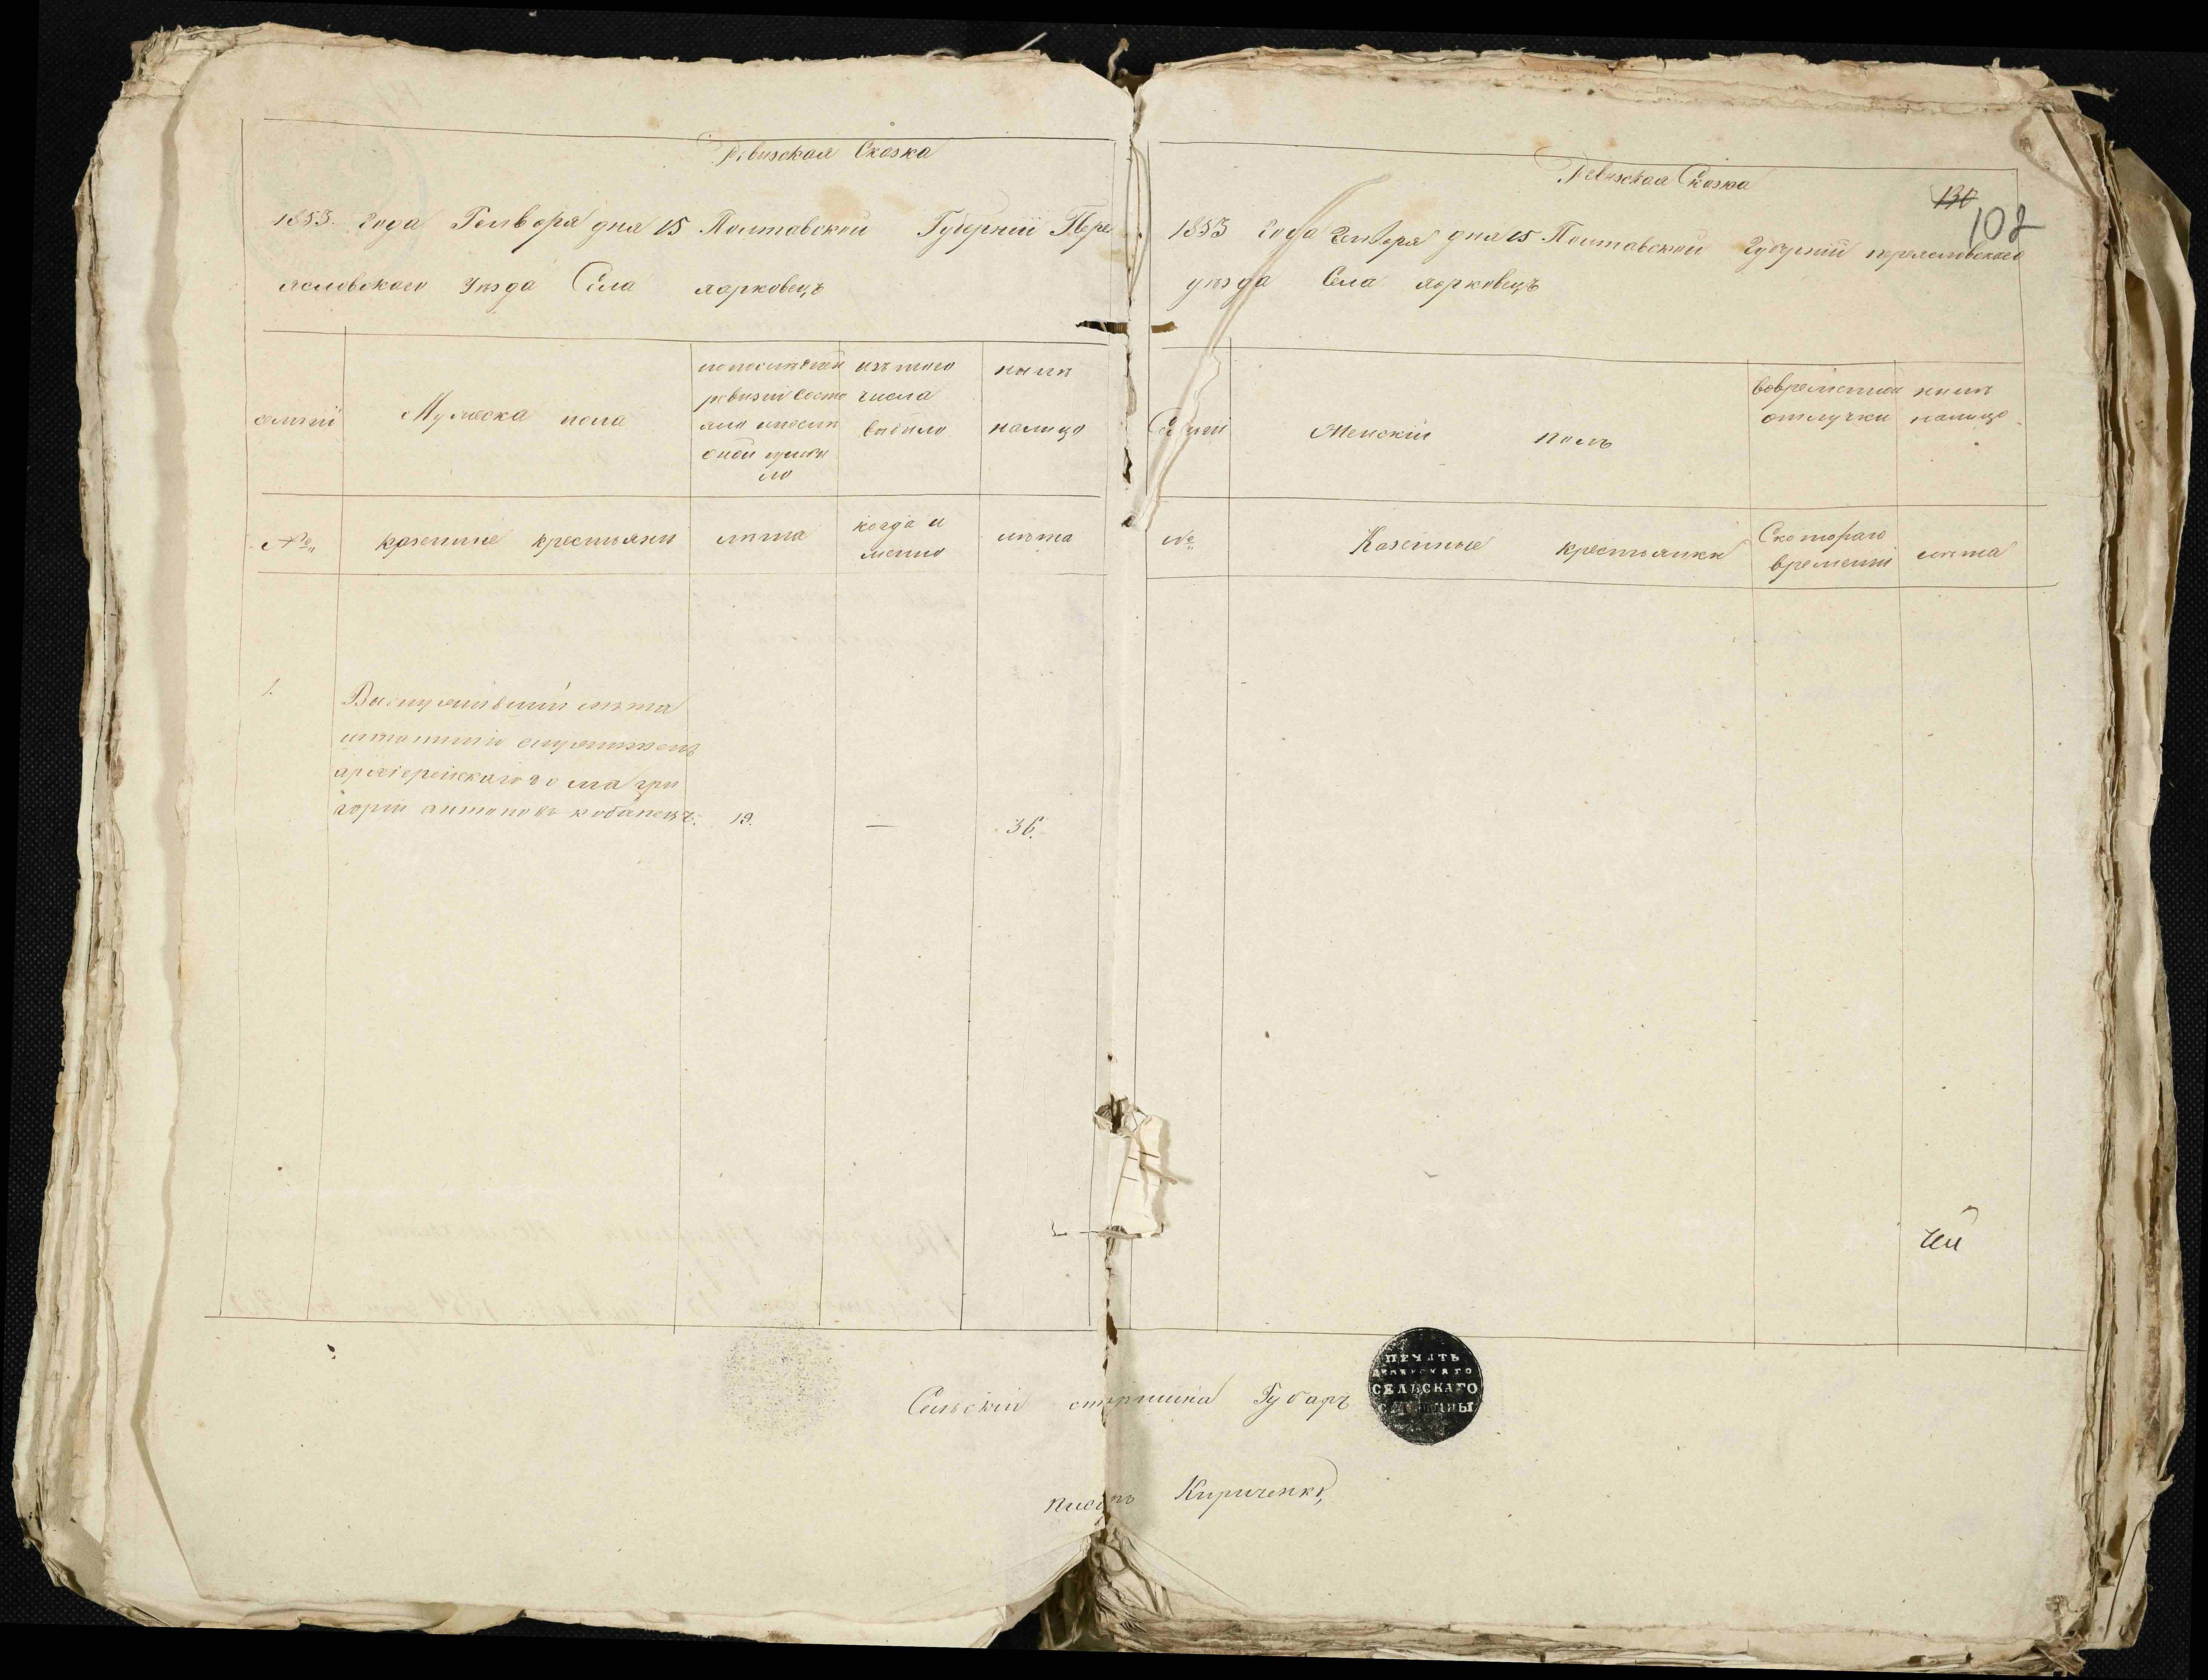 Ревизская Сказка
1853. года Генваря дня 15 Полтавской Губернии Пере
ясловского уезда Села ярковецъ
семьи
Мужеска пола
попоследней
ревизии состо
яло и после
оной прибы
ло
изъ того
числа
выбило
ныне
налицо
№
казенние крестьяни
лета
когда и
менно
лета
1.
Вислужившии лета
штатнии служитель
архіерейскаго дома гри
гории антоновъ кобанецъ.
19.
—
36.
Ревизская Сказка
130
102
1853 года Генваря дня 15 Полтавской Губернии переясловского
уезда Села ярковецъ
Семьи
Женскии полъ
вовременной
отлучки
ныне
налицо
№
Казенные крестьянки
Скотораго
времени
лета
Сельскій старшина Губаръ
ПЕЧАТЬ
СЕЛЬСКАГО
СТАРШИНЫ
писарь Кириченко